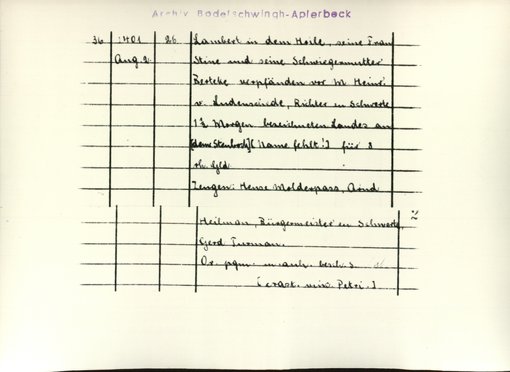 Archiv Bodelschwingh-Aplerbeck
36 1401 26 Lambert in dem Hoile, seine Frau
Aug. 2. Stine und seine Schwiegermutter
Berteke verpfänden vor M Heinr.
v. Ludenscinde, Richter in Schwerte
1½ Morgen bezeichneten Landes an
[dem Stenbroch] [Name fehlt!] für 8
rh. Gld
Zeugen: Hense Molderpass, Arnd
Heilman, Bürgermeister in Schwerte, 2
Gerd Turman.
Or. pgm. m. anh. besch. S.